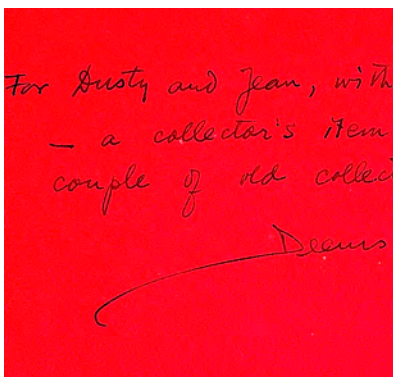 For Dusty and Jean, with
— a collector's item
couple of old collec
Deems